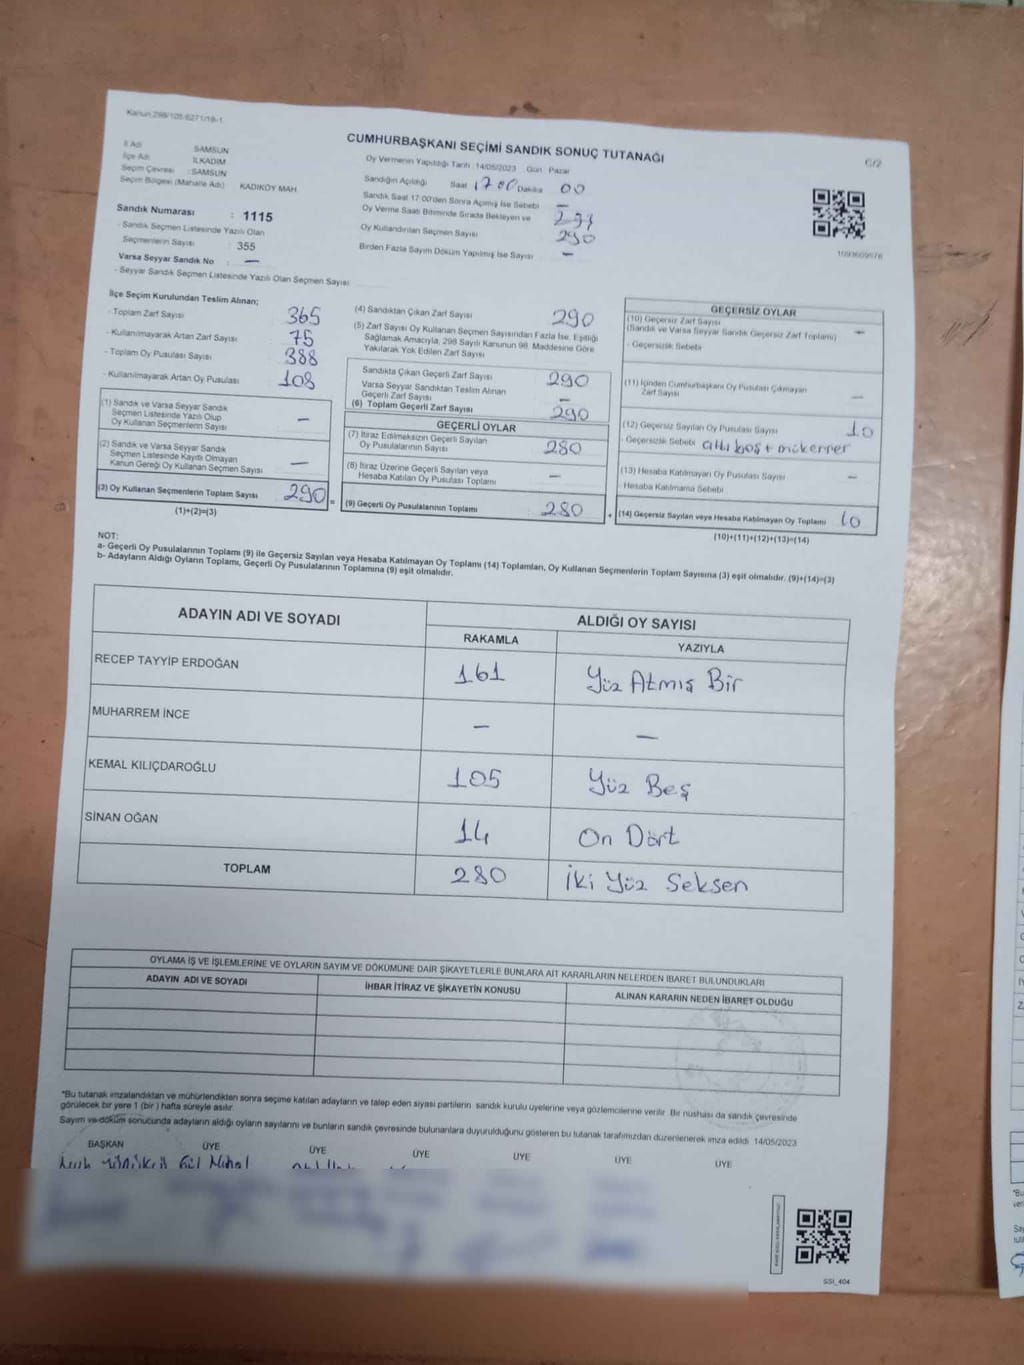 Kanun 298/105-6271/18-1
CUMHURBAŞKANI SEÇİMİ SANDIK SONUÇ TUTANAĞI
C/2
İl Adı SAMSUN
İlçe Adı İLKADIM
Seçim Çevresi : SAMSUN
Seçim Bölgesi (Mahalle Adı) KADIKÖY MAH
Oy Vermenin Yapıldığı Tarih : 14/05/2023 Gün : Pazar
Sandığın Açıldığı Saat 17 00 Dakika 00
Sandık Saat 17:00'den Sonra Açılmış İse Sebebi —
Oy Verme Saati Bitiminde Sırada Bekleyen ve
Oy Kullandırılan Seçmen Sayısı 290
Birden Fazla Sayım Döküm Yapılmış İse Sayısı —
1093609978
Sandık Numarası : 1115
- Sandık Seçmen Listesinde Yazılı Olan
Seçmenlerin Sayısı : 355
Varsa Seyyar Sandık No : —
- Seyyar Sandık Seçmen Listesinde Yazılı Olan Seçmen Sayısı
İlçe Seçim Kurulundan Teslim Alınan;
- Toplam Zarf Sayısı 365
- Kullanılmayarak Artan Zarf Sayısı 75
- Toplam Oy Pusulası Sayısı 388
- Kullanılmayarak Artan Oy Pusulası 108
(1) Sandık ve Varsa Seyyar Sandık
Seçmen Listesinde Yazılı Olup
Oy Kullanan Seçmenlerin Sayısı —
(2) Sandık ve Varsa Seyyar Sandık
Seçmen Listesinde Kayıtlı Olmayan
Kanun Gereği Oy Kullanan Seçmen Sayısı —
(3) Oy Kullanan Seçmenlerin Toplam Sayısı 290 =
(1)+(2)=(3)
(4) Sandıktan Çıkan Zarf Sayısı 290
(5) Zarf Sayısı Oy Kullanan Seçmen Sayısından Fazla İse, Eşitliği
Sağlamak Amacıyla, 298 Sayılı Kanunun 98. Maddesine Göre
Yakılarak Yok Edilen Zarf Sayısı
Sandıkta Çıkan Geçerli Zarf Sayısı 290
Varsa Seyyar Sandıktan Teslim Alınan
Geçerli Zarf Sayısı —
(6) Toplam Geçerli Zarf Sayısı 290
GEÇERLİ OYLAR
(7) İtiraz Edilmeksizin Geçerli Sayılan
Oy Pusulalarının Sayısı 280
(8) İtiraz Üzerine Geçerli Sayılan veya
Hesaba Katılan Oy Pusulası Toplamı —
(9) Geçerli Oy Pusulalarının Toplamı 280 +
GEÇERSİZ OYLAR
(10) Geçersiz Zarf Sayısı —
(Sandık ve Varsa Seyyar Sandık Geçersiz Zarf Toplamı)
- Geçersizlik Sebebi
(11) İçinden Cumhurbaşkanı Oy Pusulası Çıkmayan
Zarf Sayısı —
(12) Geçersiz Sayılan Oy Pusulası Sayısı 10
- Geçersizlik Sebebi altı boş + mükerrer
(13) Hesaba Katılmayan Oy Pusulası Sayısı —
Hesaba Katılmama Sebebi
(14) Geçersiz Sayılan veya Hesaba Katılmayan Oy Toplamı 10
(10)+(11)+(12)+(13)=(14)
NOT:
a- Geçerli Oy Pusulalarının Toplamı (9) ile Geçersiz Sayılan veya Hesaba Katılmayan Oy Toplamı (14) Toplamları, Oy Kullanan Seçmenlerin Toplam Sayısına (3) eşit olmalıdır. (9)+(14)=(3)
b- Adayların Aldığı Oyların Toplamı, Geçerli Oy Pusulalarının Toplamına (9) eşit olmalıdır.
ADAYIN ADI VE SOYADI ALDIĞI OY SAYISI
RAKAMLA YAZIYLA
RECEP TAYYİP ERDOĞAN 161 Yüz Atmış Bir
MUHARREM İNCE — —
KEMAL KILIÇDAROĞLU 105 Yüz Beş
SİNAN OĞAN 14 On Dört
TOPLAM 280 İki Yüz Seksen
OYLAMA İŞ VE İŞLEMLERİNE VE OYLARIN SAYIM VE DÖKÜMÜNE DAİR ŞİKAYETLERLE BUNLARA AİT KARARLARIN NELERDEN İBARET BULUNDUKLARI
ADAYIN ADI VE SOYADI İHBAR İTİRAZ VE ŞİKAYETİN KONUSU ALINAN KARARIN NEDEN İBARET OLDUĞU
*Bu tutanak imzalandıktan ve mühürlendikten sonra seçime katılan adayların ve talep eden siyasi partilerin sandık kurulu üyelerine veya gözlemcilerine verilir. Bir nüshası da sandık çevresinde
görülecek bir yere 1 (bir ) hafta süreyle asılır.
Sayım ve döküm sonucunda adayların aldığı oyların sayılarını ve bunların sandık çevresinde bulunanlara duyurulduğunu gösteren bu tutanak tarafımızdan düzenlenerek imza edildi. 14/05/2023
BAŞKAN ÜYE ÜYE ÜYE ÜYE ÜYE ÜYE
SSİ_404